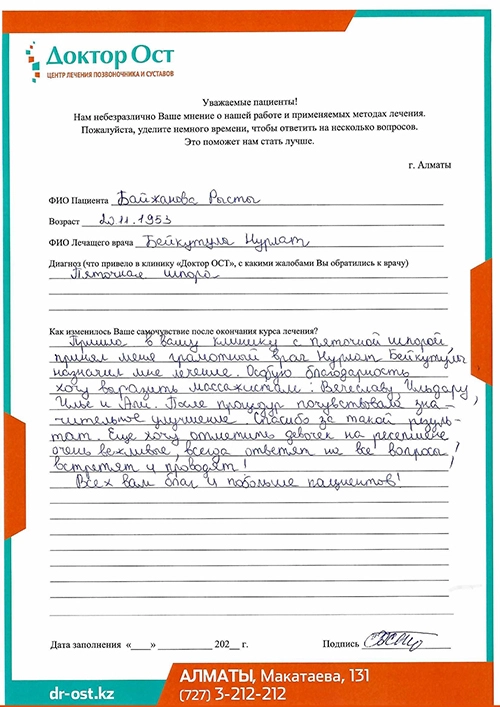 Доктор Ост
ЦЕНТР ЛЕЧЕНИЯ ПОЗВОНОЧНИКА И СУСТАВОВ
Уважаемые пациенты!
Нам небезразлично Ваше мнение о нашей работе и применяемых методах лечения.
Пожалуйста, уделите немного времени, чтобы ответить на несколько вопросов.
Это поможет нам стать лучше.
г. Алматы
ФИО Пациента Байжанова Рысты
Возраст 20.11.1953
ФИО Лечащего врача Бейкутулы Нурлат
Диагноз (что привело в клинику «Доктор ОСТ», с какими жалобами Вы обратились к врачу)
Пяточная шпора
Как изменилось Ваше самочувствие после окончания курса лечения?
Пришла в вашу клинику с пяточной шпорой,
принял меня грамотный врач Нурлат Бейкутулы
назначил мне лечение. Особую благодарность
хочу выразить массажистам: Вячеславу, Ильдару,
Илье и Али. После процедур почувствовала зна-
чительное улучшение. Спасибо за такой резуль-
тат. Еще хочу отметить девочек на ресепшене
очень вежливые, всегда ответят на все вопросы,
встретят и проводят!
Всех вам благ и побольше пациентов!
Дата заполнения «___» _________ 202__ г.
Подпись
АЛМАТЫ, Макатаева, 131
dr-ost.kz
(727) 3-212-212